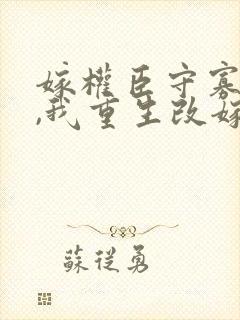 嫁權臣守寡
,我重生改嫁
蘇從勇